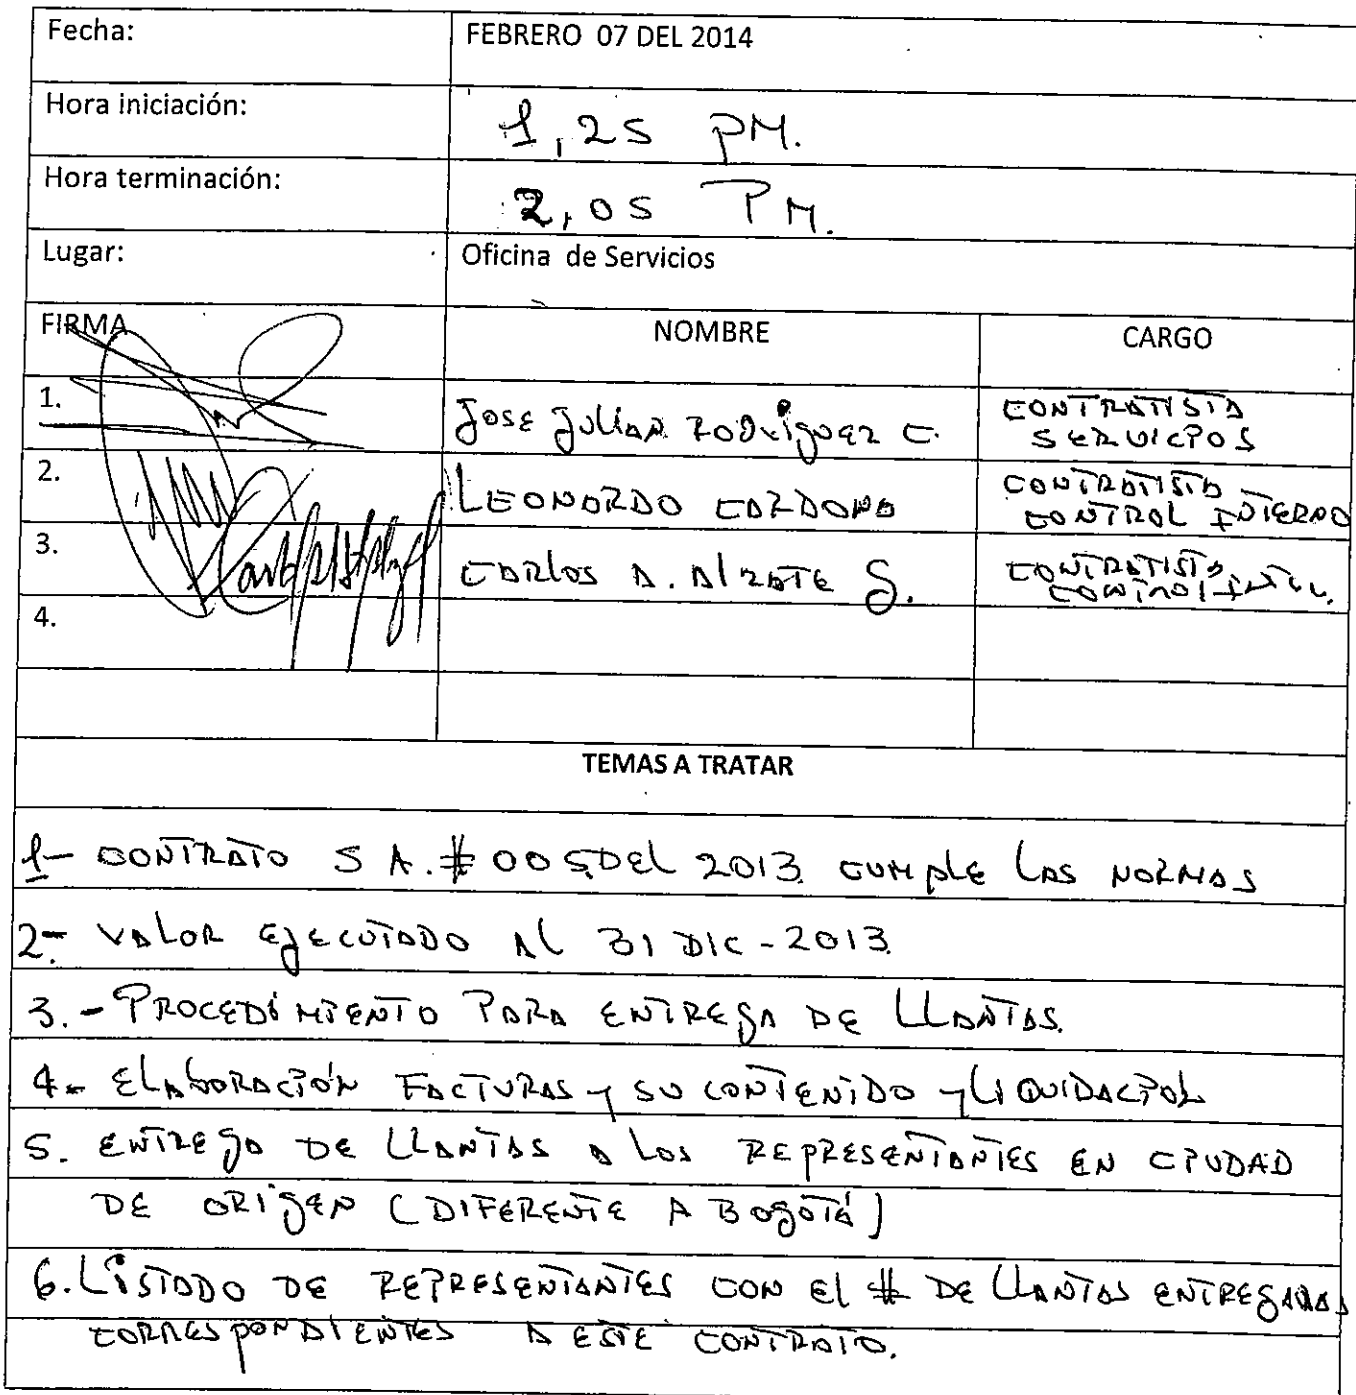 Fecha: FEBRERO 07 DEL 2014
Hora iniciación: 1,25 PM.
Hora terminación: 2,05 PM.
Lugar: Oficina de Servicios
FIRMA NOMBRE CARGO
1. JOSE JULIAN RODRIGUEZ C. CONTRATISTA
SERVICIOS
2. LEONARDO CARDONA CONTRATISTA
CONTROL INTERNO
3. CARLOS A. ALZATE S. CONTRATISTA
CONTROL
4.
TEMAS A TRATAR
1- CONTRATO S A. # 005 DEL 2013 CUMPLE LAS NORMAS
2- VALOR EJECUTADO AL 31 DIC - 2013
3.- PROCEDIMIENTO PARA ENTREGA DE LLANTAS.
4- ELABORACIÓN FACTURAS Y SU CONTENIDO Y LIQUIDACION
5. ENTREGA DE LLANTAS A LOS REPRESENTANTES EN CIUDAD
DE ORIGEN (DIFERENTE A BOGOTÁ)
6. LISTADO DE REPRESENTANTES CON EL # DE LLANTAS ENTREGADAS
CORRESPONDIENTES A ESTE CONTRATO.